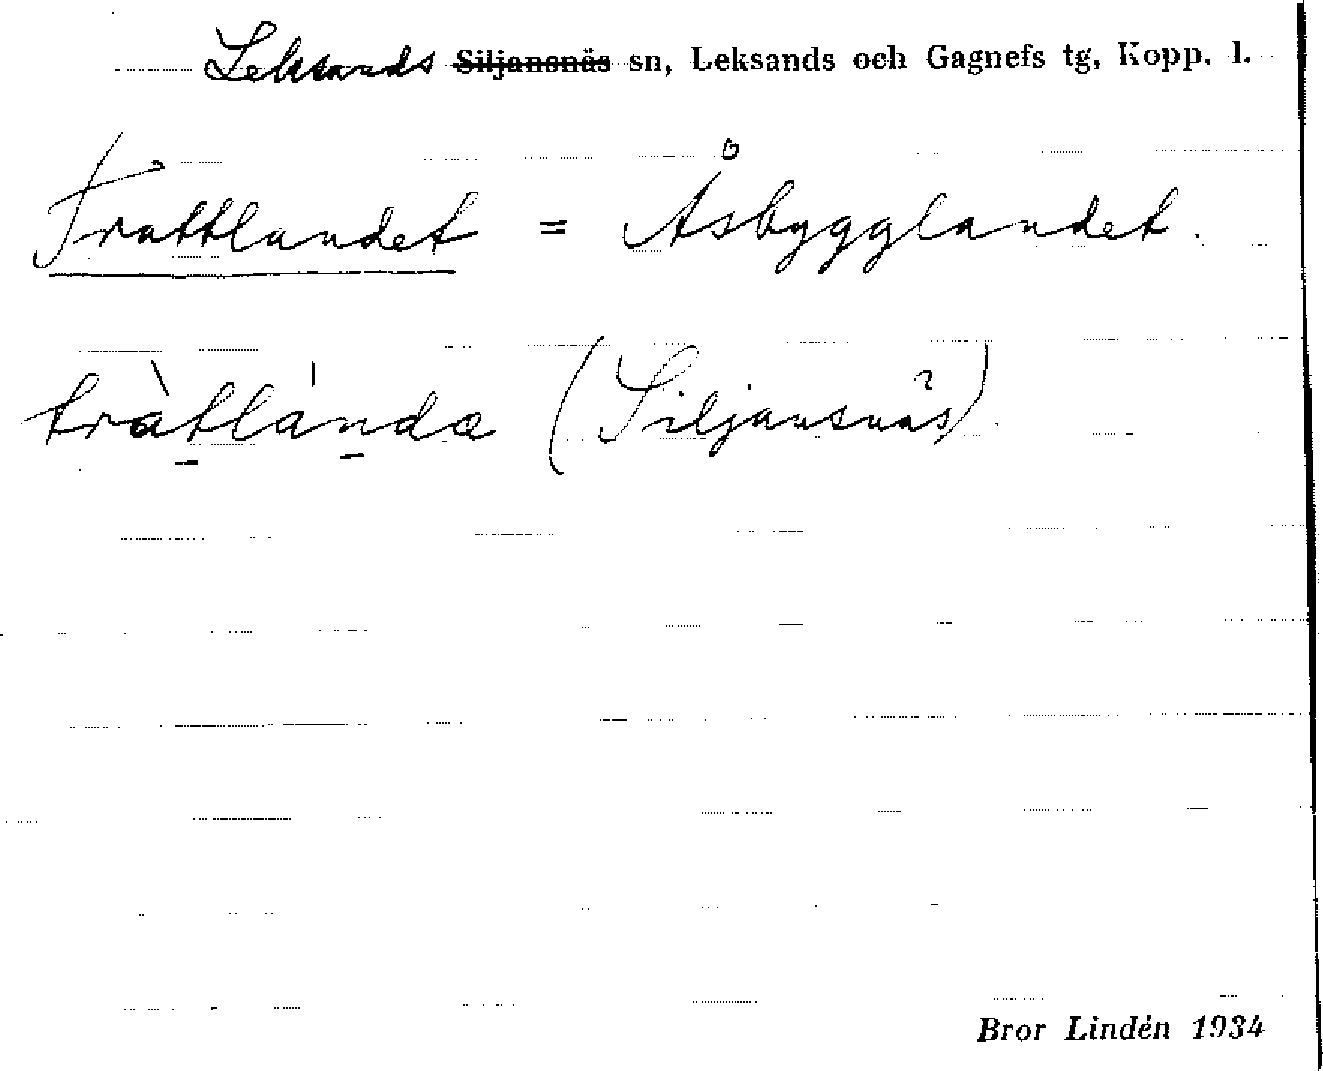 Leksands Siljansnäs sn, Leksands och Gagnefs tg, Kopp. l.
Tråttlandet = Åsbygglandet.
tràtlánda (Siljansnäs)
Bror Lindén 1934